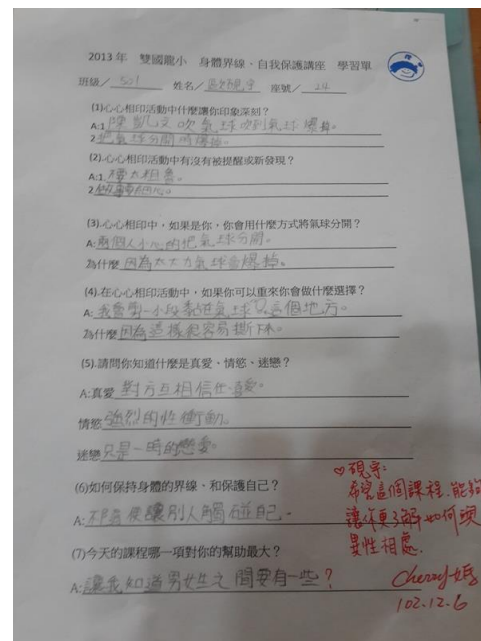 2013年 雙國龍小 身體界線、自我保護講座 學習單
班級/ 501 姓名/ 硯宇 座號/ 24
(1)心心相印活動中什麼讓你印象深刻?
A:1.陳凱文吹氣球吹到氣球爆掉。
2.把氣球分開時爆掉。
(2)心心相印活動中有沒有被提醒或新發現?
A:1.不要太粗魯。
2.做事要細心。
(3)心心相印中,如果是你,你會用什麼方式將氣球分開?
A:兩個人小心的把氣球分開。
為什麼 因為太大力氣球會爆掉。
(4).在心心相印活動中,如果你可以重來你會做什麼選擇?
A:我會剪一小段黏進氣球 這個地方。
為什麼 因為這樣很容易撕下來。
(5).請問你知道什麼是真愛、情慾、迷戀?
A:真愛 對方互相信任喜愛。
情慾 強烈的性衝動。
迷戀 只是一時的戀愛。
(6)如何保持身體的界線、和保護自己?
A:不隨便讓別人觸碰自己。
(7)今天的課程哪一項對你的幫助最大?
A:讓我知道男女生之間要有一些?
♡硯宇:
希望這個課程,能夠
讓你更了解如何與
異性相處.
Cherry媽
102.12.6